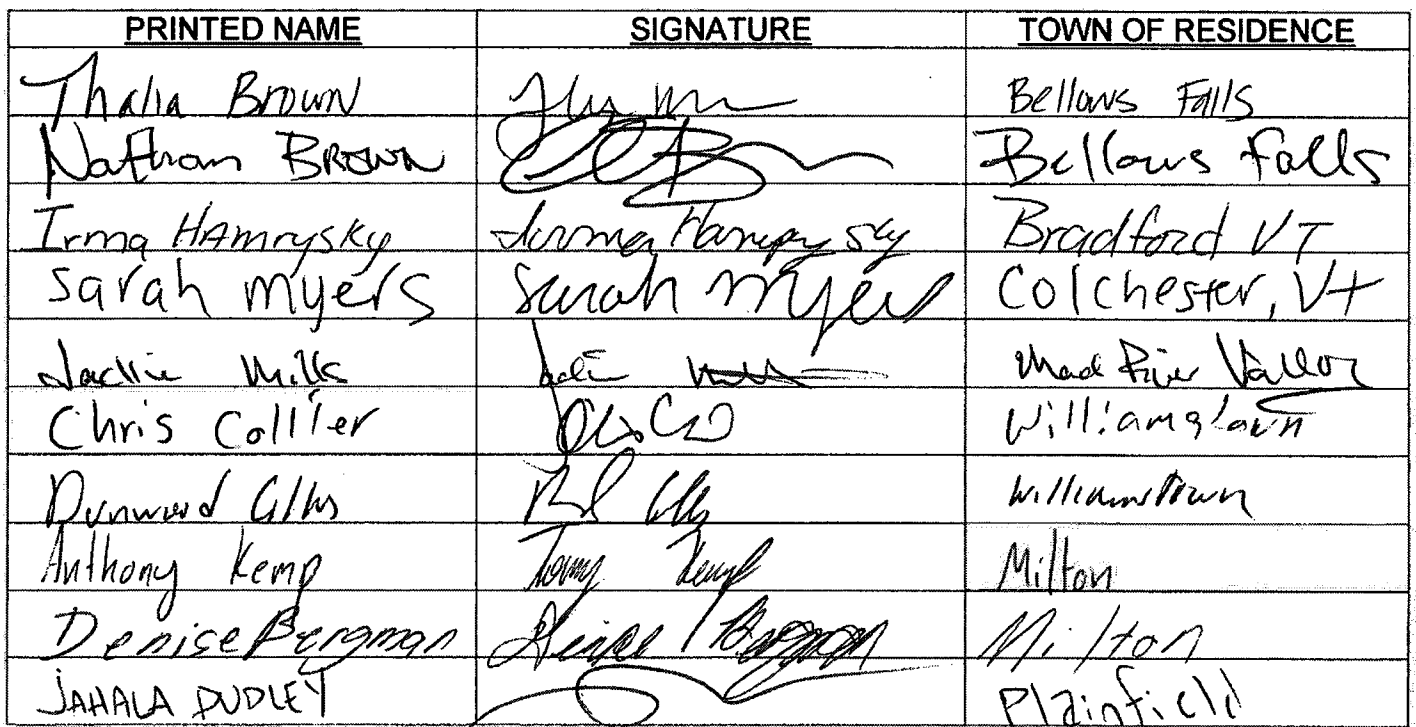 PRINTED NAME SIGNATURE TOWN OF RESIDENCE
Thalia Brown Bellows Falls
Nathan BROWN Bellows Falls
Irma HAmrysky Irma Bradford VT
Sarah Myers Sarah Myers Colchester, Vt
Jackie Mills Mad River Valley
Chris Collier Williamstown
Williamstown
Anthony Kemp Tony Kemp Milton
Denise Bergman Denise Bergman Milton
JAHALA DUDLEY Plainfield